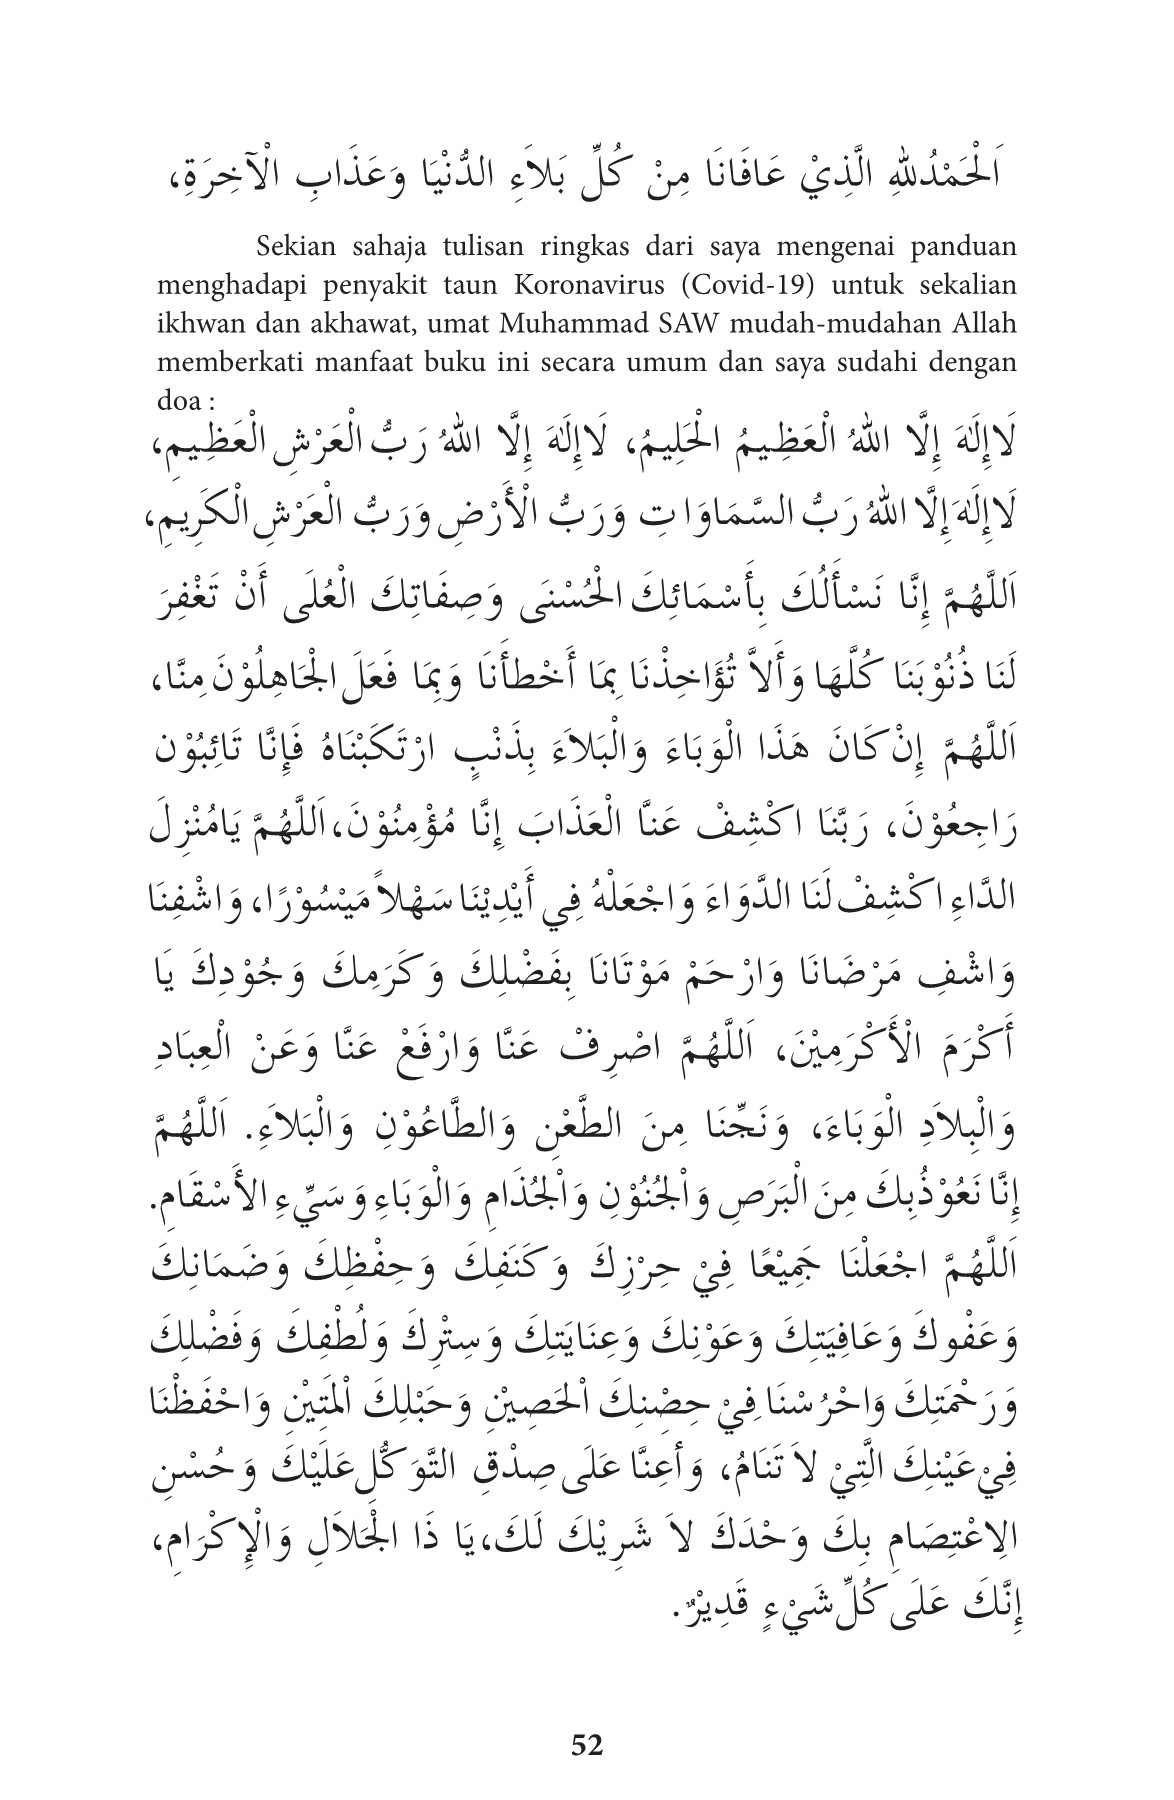 اَلْحَمْدُلِلهِ الَّذِيْ عَافَانَا مِنْ كُلِّ بَلاَءِ الدُّنْيَا وَعَذَابِ الْآخِرَةِ،
Sekian sahaja tulisan ringkas dari saya mengenai panduan
menghadapi penyakit taun Koronavirus (Covid-19) untuk sekalian
ikhwan dan akhawat, umat Muhammad SAW mudah-mudahan Allah
memberkati manfaat buku ini secara umum dan saya sudahi dengan
doa :
لَاإِلَهَ إِلَّا اللهُ الْعَظِيمُ الْحَلِيمُ، لَاإِلَهَ إِلَّا اللهُ رَبُّ الْعَرْشِ الْعَظِيمِ،
لَاإِلَهَ إِلَّا اللهُ رَبُّ السَّمَاوَاتِ وَرَبُّ الْأَرْضِ وَرَبُّ الْعَرْشِ الْكَرِيمِ،
اَللَّهُمَّ إِنَّا نَسْأَلُكَ بِأَسْمَائِكَ الْحُسْنَى وَصِفَاتِكَ الْعُلَى أَنْ تَغْفِرَ
لَنَا ذُنُوْبَنَا كُلَّهَا وَأَلاَّ تُؤَاخِذْنَا بِمَا أَخْطأْنَا وَبِمَا فَعَلَ الْجَاهِلُوْنَ مِنَّا،
اَللَّهُمَّ إِنْ كَانَ هَذَا الْوَبَاءَ وَالْبَلاَءَ بِذَنْبٍ ارْتَكَبْنَاهُ فَإِنَّا تَائِبُوْن
رَاجِعُوْنَ، رَبَّنَا اكْشِفْ عَنَّا الْعَذَابَ إِنَّا مُؤْمِنُوْنَ، اَللَّهُمَّ يَامُنْزِلَ
الدَّاءِ اكْشِفْ لَنَا الدَّوَاءَ وَاجْعَلْهُ فِي أَيْدِيْنَا سَهْلاً مَيْسُوْرًا، وَاشْفِنَا
وَاشْفِ مَرْضَانَا وَارْحَمْ مَوْتَانَا بِفَضْلِكَ وَكَرَمِكَ وَجُوْدِكَ يَا
أَكْرَمَ الْأَكْرَمِيْنَ، اَللَّهُمَّ اصْرِفْ عَنَّا وَارْفَعْ عَنَّا وَعَنْ الْعِبَادِ
وَالْبِلاَدِ الْوَبَاءَ، وَنَجِّنَا مِنَ الطَّعْنِ وَالطَّاعُوْنِ وَالْبَلاَءِ. اَللَّهُمَّ
إِنَّا نَعُوْذُبِكَ مِنَ الْبَرَصِ وَالْجُنُوْنِ وَالْجُذَامِ وَالْوَبَاءِ وَسَيِّءِ الأَسْقَامِ.
اَللَّهُمَّ اجْعَلْنَا جَمِيْعًا فِيْ حِرْزِكَ وَكَنَفِكَ وَحِفْظِكَ وَضَمَانِكَ
وَعَفْوِكَ وَعَافِيَتِكَ وَعَوْنِكَ وَعِنَايَتِكَ وَسِتْرِكَ وَلُطْفِكَ وَفَضْلِكَ
وَرَحْمَتِكَ وَاحْرُسْنَا فِيْ حِصْنِكَ الْحَصِيْنِ وَحَبْلِكَ الْمَتِيْنِ وَاحْفَظْنَا
فِيْ عَيْنِكَ الَّتِيْ لاَ تَنَامُ، وَأعِنَّا عَلَى صِدْقِ التَّوَكُّلِ عَلَيْكَ وَحُسْنِ
الِاعْتِصَامِ بِكَ وَحْدَكَ لاَ شَرِيْكَ لَكَ، يَا ذَا الْجَلاَلِ وَالْإِكْرَامِ،
إِنَّكَ عَلَى كُلِّ شَيْءٍ قَدِيْرٌ.
52